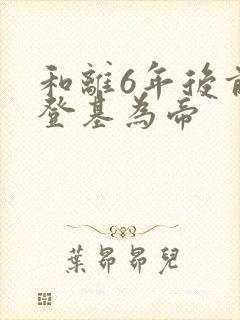 和離6年後前
登基為帝
葉昂昂兒